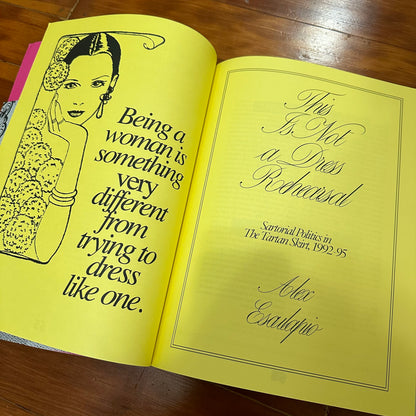 Being a
woman is
something
very
different
from
trying to
dress
like one.
This
Is Not
a Dress
Rehearsal
Sartorial Politics in
The Tartan Skirt, 1992-95
Alex
Esculapio